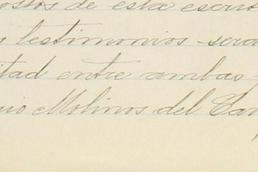 ostos de esta escrit
testimonios serán
itad entre ambas
Molinos del Car